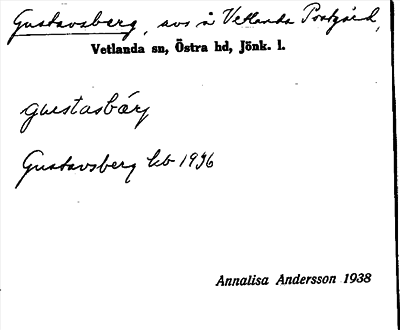 Gustavsberg, avs å Vetlanda Prostgård,
Vetlanda sn, Östra hd, Jönk. l.
gustasbárj
Gustavsberg kb 1936
Annalisa Andersson 1938